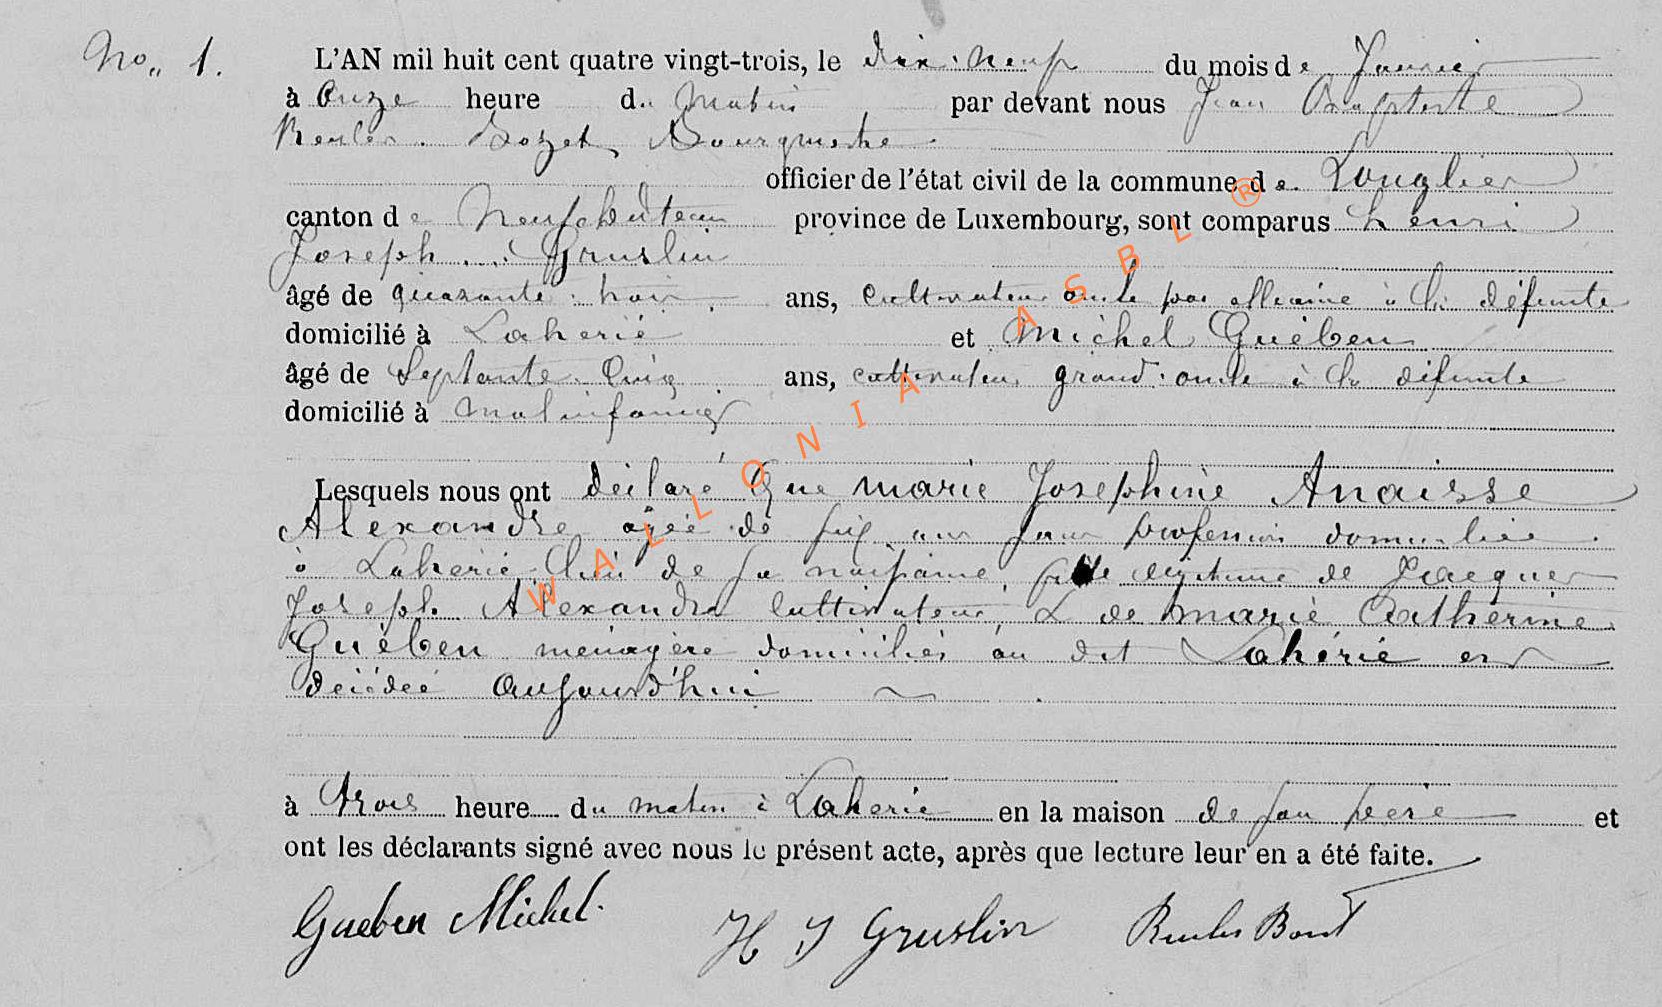 No. 1. L'AN mil huit cent quatre vingt-trois, le dix-neuf du mois de Janvier
à Onze heure du Matin par devant nous Jean Baptiste
Reuler Bourgmestre
officier de l'état civil de la commune de Longlier
canton de Neufchâteau province de Luxembourg, sont comparus henri
Joseph Gruslin
âgé de quarante ans, Cultivateur oncle par alleaine à la défunte
domicilié à Laherié et Michel Guèben
âgé de Septante Cinq ans, cultivateur grand oncle à la défunte
domicilié à Molinfaing
Lesquels nous ont déclaré que marie Josephine Anaisse
Alexandre agée de six ans sans profession domiciliée
à Laherie lieu de sa naissance, fille légitime de Jacques
Joseph Alexandre Cultivateur, & de marie Catherine
Guèben menagère domiciliés au dit Lahérié est
décédée aujourd'hui
à trois heure du matin à Laherié en la maison de son père et
ont les déclarants signé avec nous le présent acte, après que lecture leur en a été faite.
Gueben Michel. H J Gruslin Reuler Bont
WALLONIA ASBL ®